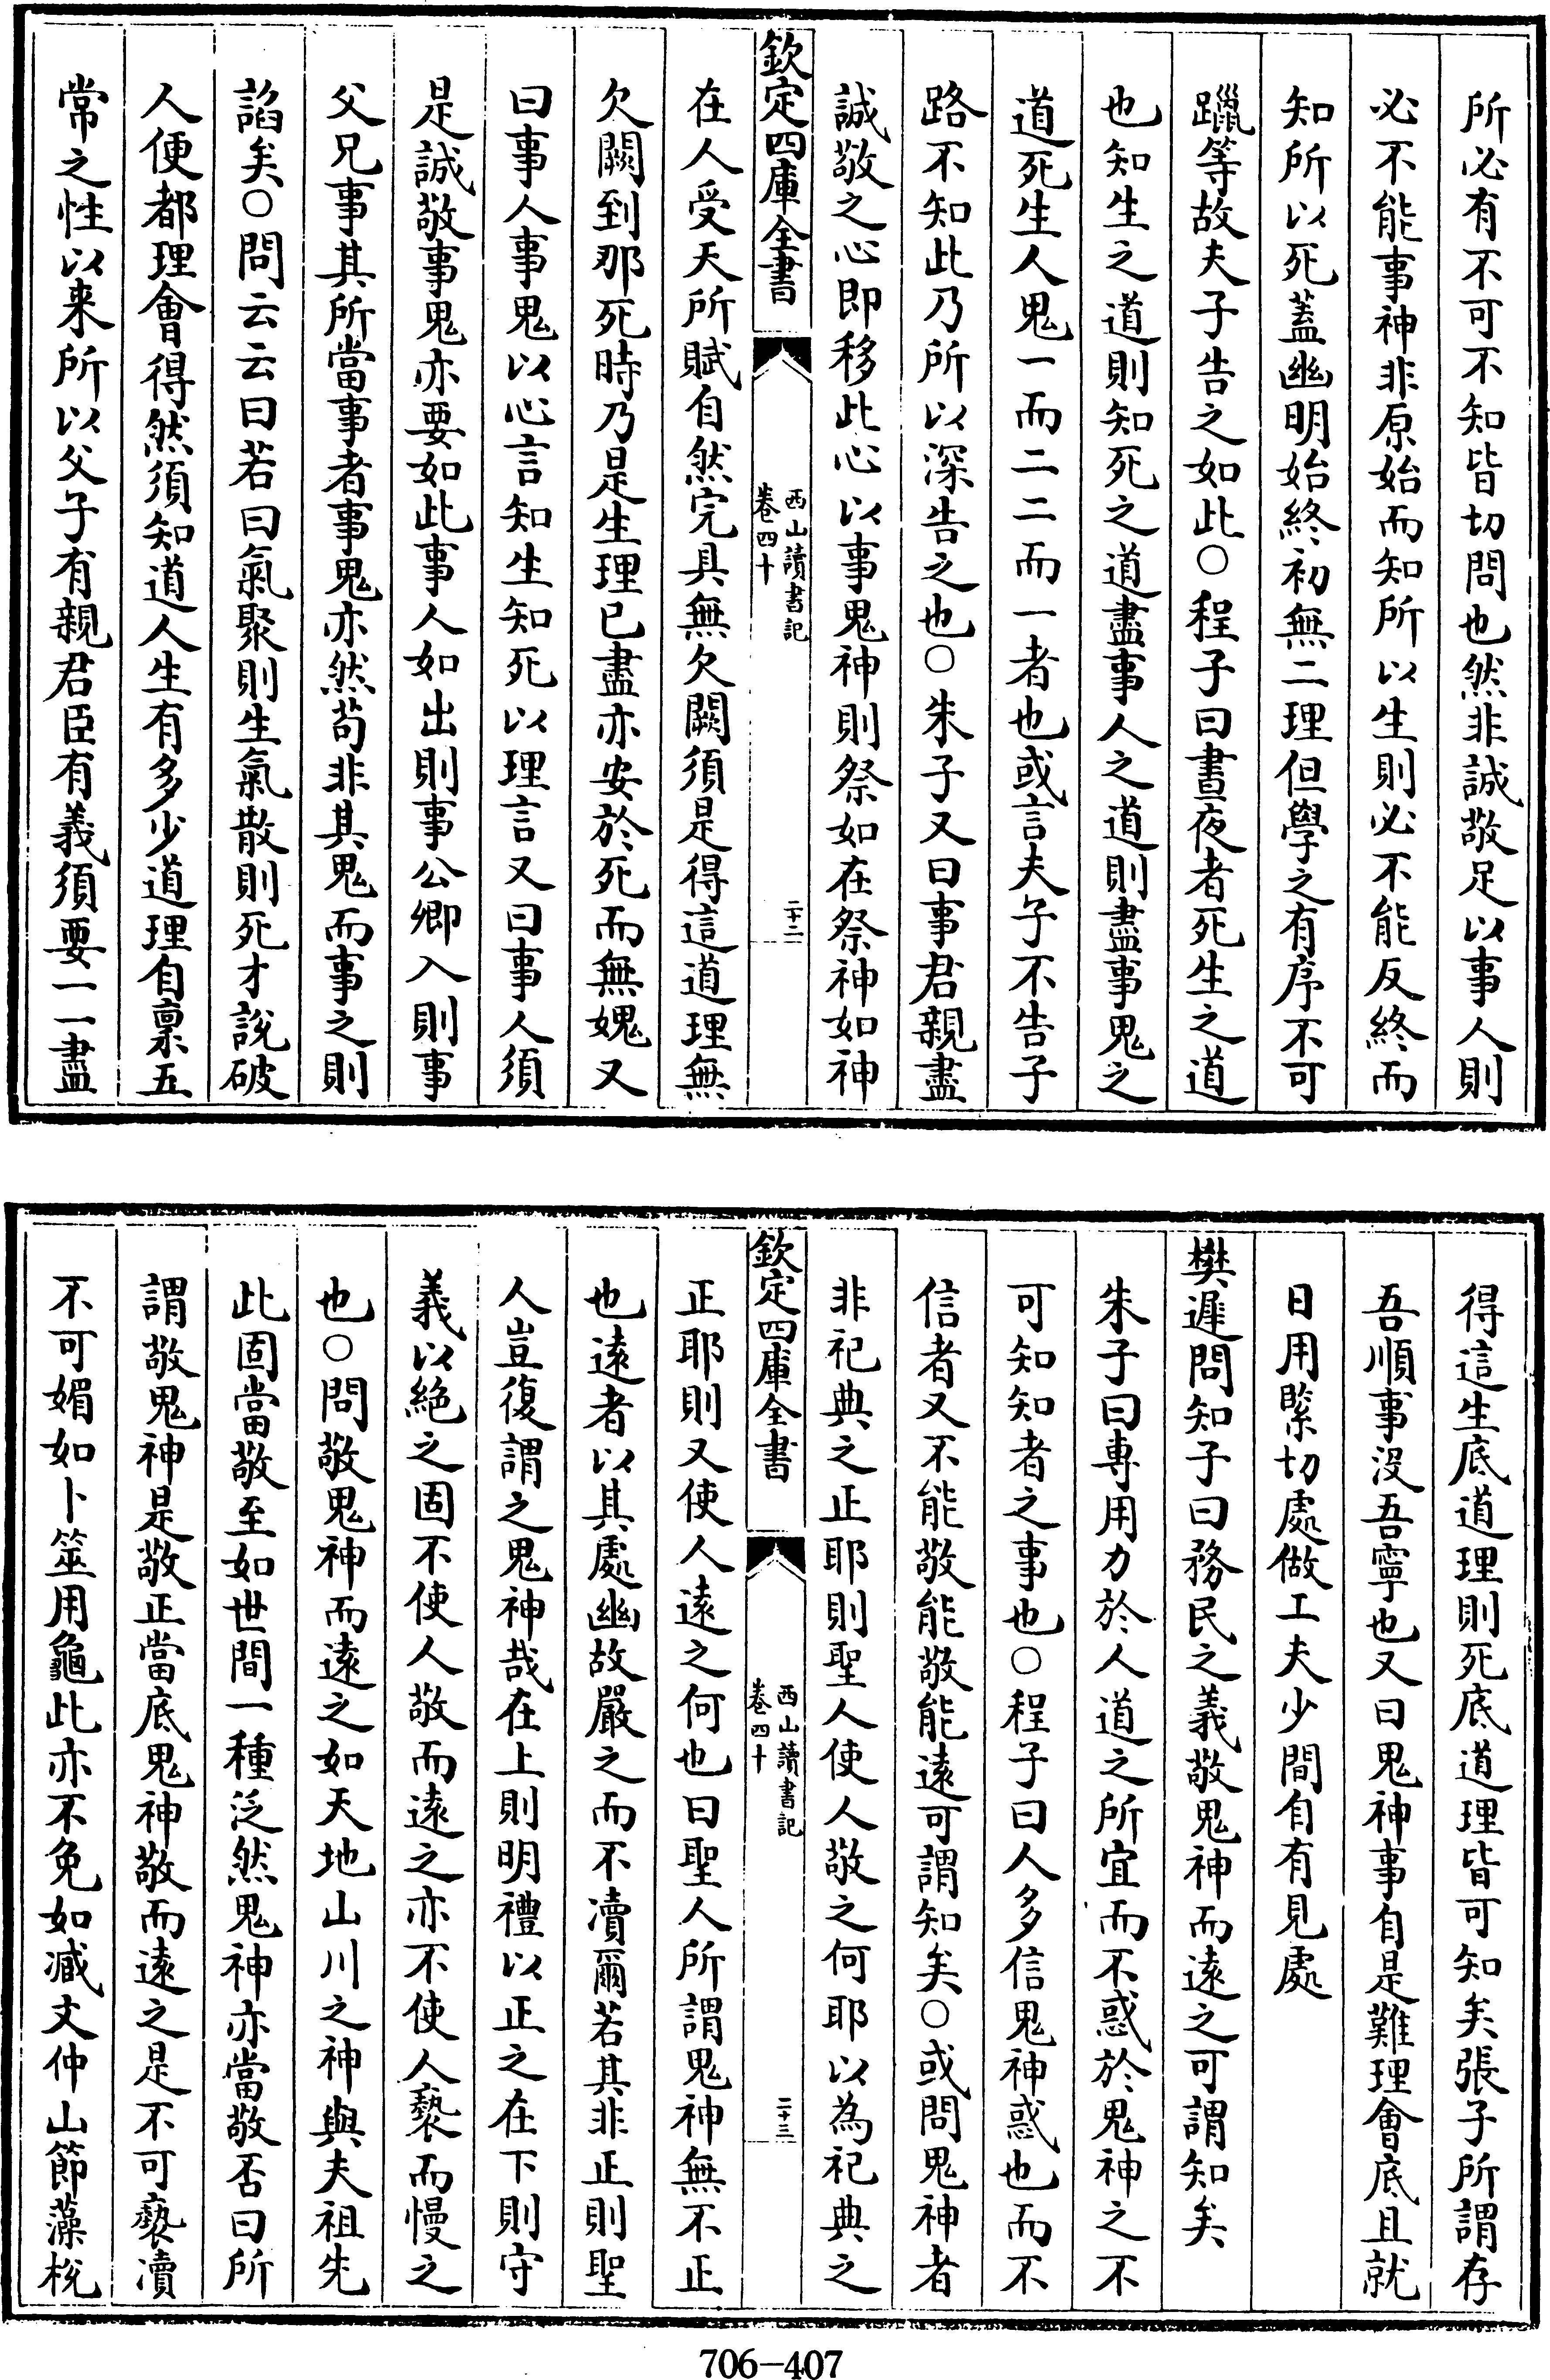 所必有不可不知皆切問也然非誠敬足以事人則
必不能事神非原始而知所以生則必不能反終而
知所以死蓋幽明始終初無二理但學之有序不可
躐等故夫子告之如此○程子曰晝夜者死生之道
也知生之道則知死之道盡事人之道則盡事鬼之
道死生人鬼一而二二而一者也或言夫子不告子
路不知此乃所以深告之也○朱子又曰事君親盡
誠敬之心即移此心以事鬼神則祭如在祭神如神
欽定四庫全書
西山讀書記
卷四十
二十二
在人受天所賦自然完具無欠闕須是得這道理無
欠闕到那死時乃是生理已盡亦安於死而無媿又
曰事人事鬼以心言知生知死以理言又曰事人須
是誠敬事鬼亦要如此事人如出則事公卿入則事
父兄事其所當事者事鬼亦然苟非其鬼而事之則
諂矣○問云云曰若曰氣聚則生氣散則死才說破
人便都理會得然須知道人生有多少道理自稟五
常之性以来所以父子有親君臣有義須要一一盡
得這生底道理則死底道理皆可知矣張子所謂存
吾順事没吾寧也又曰鬼神事自是難理會底且就
日用緊切處做工夫少間自有見處
樊遲問知子曰務民之義敬鬼神而遠之可謂知矣
朱子曰專用力於人道之所宜而不惑於鬼神之不
可知知者之事也○程子曰人多信鬼神惑也而不
信者又不能敬能敬能遠可謂知矣○或問鬼神者
非祀典之正耶則聖人使人敬之何耶以為祀典之
欽定四庫全書
西山讀書記
卷四十
二十三
正耶則又使人遠之何也曰聖人所謂鬼神無不正
也遠者以其處幽故嚴之而不瀆爾若其非正則聖
人豈復謂之鬼神哉在上則明禮以正之在下則守
義以絶之固不使人敬而遠之亦不使人褻而慢之
也○問敬鬼神而遠之如天地山川之神與夫祖先
此固當敬至如世間一種泛然鬼神亦當敬否曰所
謂敬鬼神是敬正當底鬼神敬而遠之是不可褻瀆
不可媚如卜筮用龜此亦不免如臧文仲山節藻梲
706-407